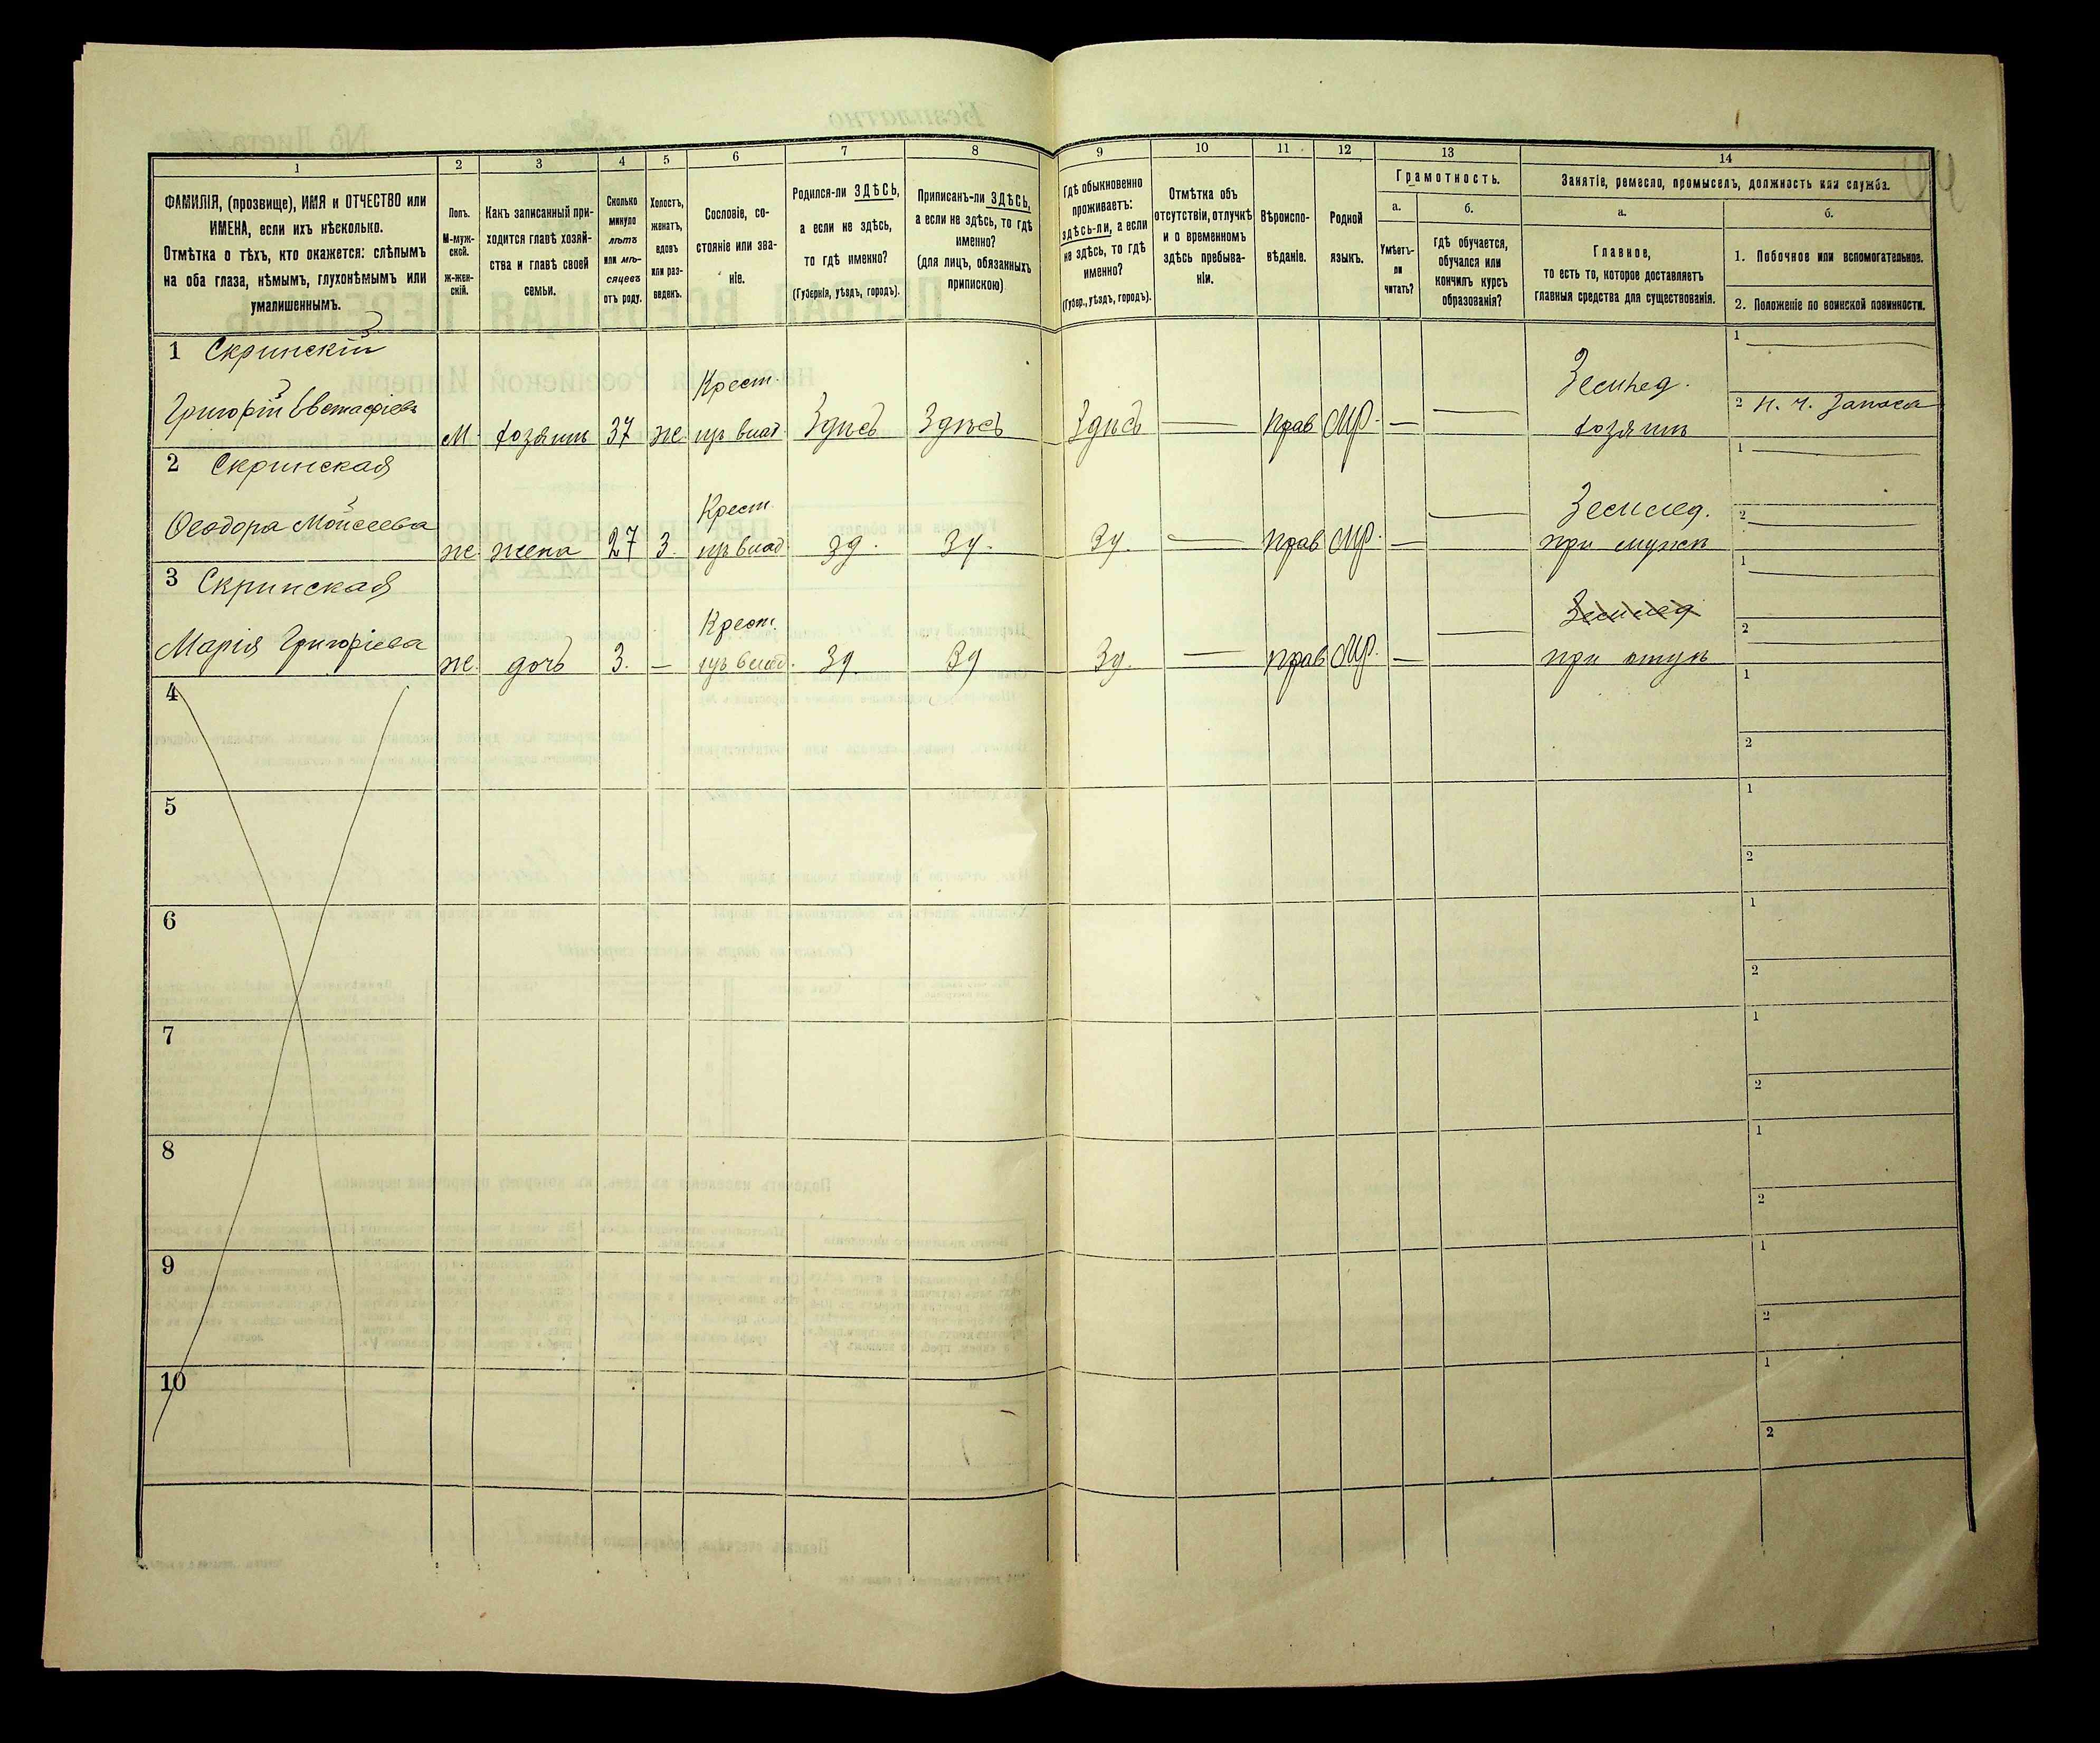 1
2
3
4
5
6
7
8
9
10
11
12
13
14
ФАМИЛІЯ, (прозвище), ИМЯ и ОТЧЕСТВО или
ИМЕНА, если ихъ нѣсколько.
Отмѣтка о тѣхъ, кто окажется: слѣпымъ
на оба глаза, нѣмымъ, глухонѣмымъ или
умалишеннымъ.
Полъ.
М-муж-
ской.
ж-жен-
скій.
Какъ записанный при-
ходится главѣ хозяй-
ства и главѣ своей
семьи.
Сколько
минуло
лѣтъ
или мѣ-
сяцевъ
отъ роду.
Холостъ,
женатъ,
вдовъ
или раз-
веденъ.
Сословіе, со-
стояніе или зва-
ніе.
Родился-ли ЗДѢСЬ,
а если не здѣсь,
то гдѣ именно?
(Губернія, уѣздъ, городъ).
Приписанъ-ли ЗДѢСЬ,
а если не здѣсь, то гдѣ
именно?
(для лицъ, обязанныхъ
припискою)
Гдѣ обыкновенно
проживаетъ:
здѣсь-ли, а если
не здѣсь, то гдѣ
именно?
(Губер., уѣздъ, городъ).
Отмѣтка объ
отсутствіи, отлучкѣ
и о временномъ
здѣсь пребыва-
ніи.
Вѣроиспо-
вѣданіе.
Родной
языкъ.
Грамотность.
а.
Умѣетъ-
ли
читать?
б.
гдѣ обучается,
обучался или
кончилъ курсъ
образованія?
Занятіе, ремесло, промыселъ, должность или служба.
а.
Главное,
то есть то, которое доставляетъ
главныя средства для существованія.
б.
1. Побочное или вспомогательное.
2. Положеніе по воинской повинности.
1 Скринскій
Григорій Евстафіевъ
М. хозяинъ 37 же. Крест. изъ влад. Здѣсь Здѣсь Здѣсь — Прав Мр. — — Землед. хозяинъ
1 —
2 н. ч. Запаса
2 Скринская
Ѳеодора Мойсеева
же. жена 27 З. Крест. изъ влад. зд. зд. зд. — Прав Мр. — — Землед. при мужѣ
1 —
2 —
3 Скринская
Марія Григоріева
же. дочь 3. — Крест. изъ влад. зд. зд зд. — Прав Мр. — — Землед при отцѣ
1 —
2
4
1
2
5
1
2
6
1
2
7
1
2
8
1
2
9
1
2
10
1
2